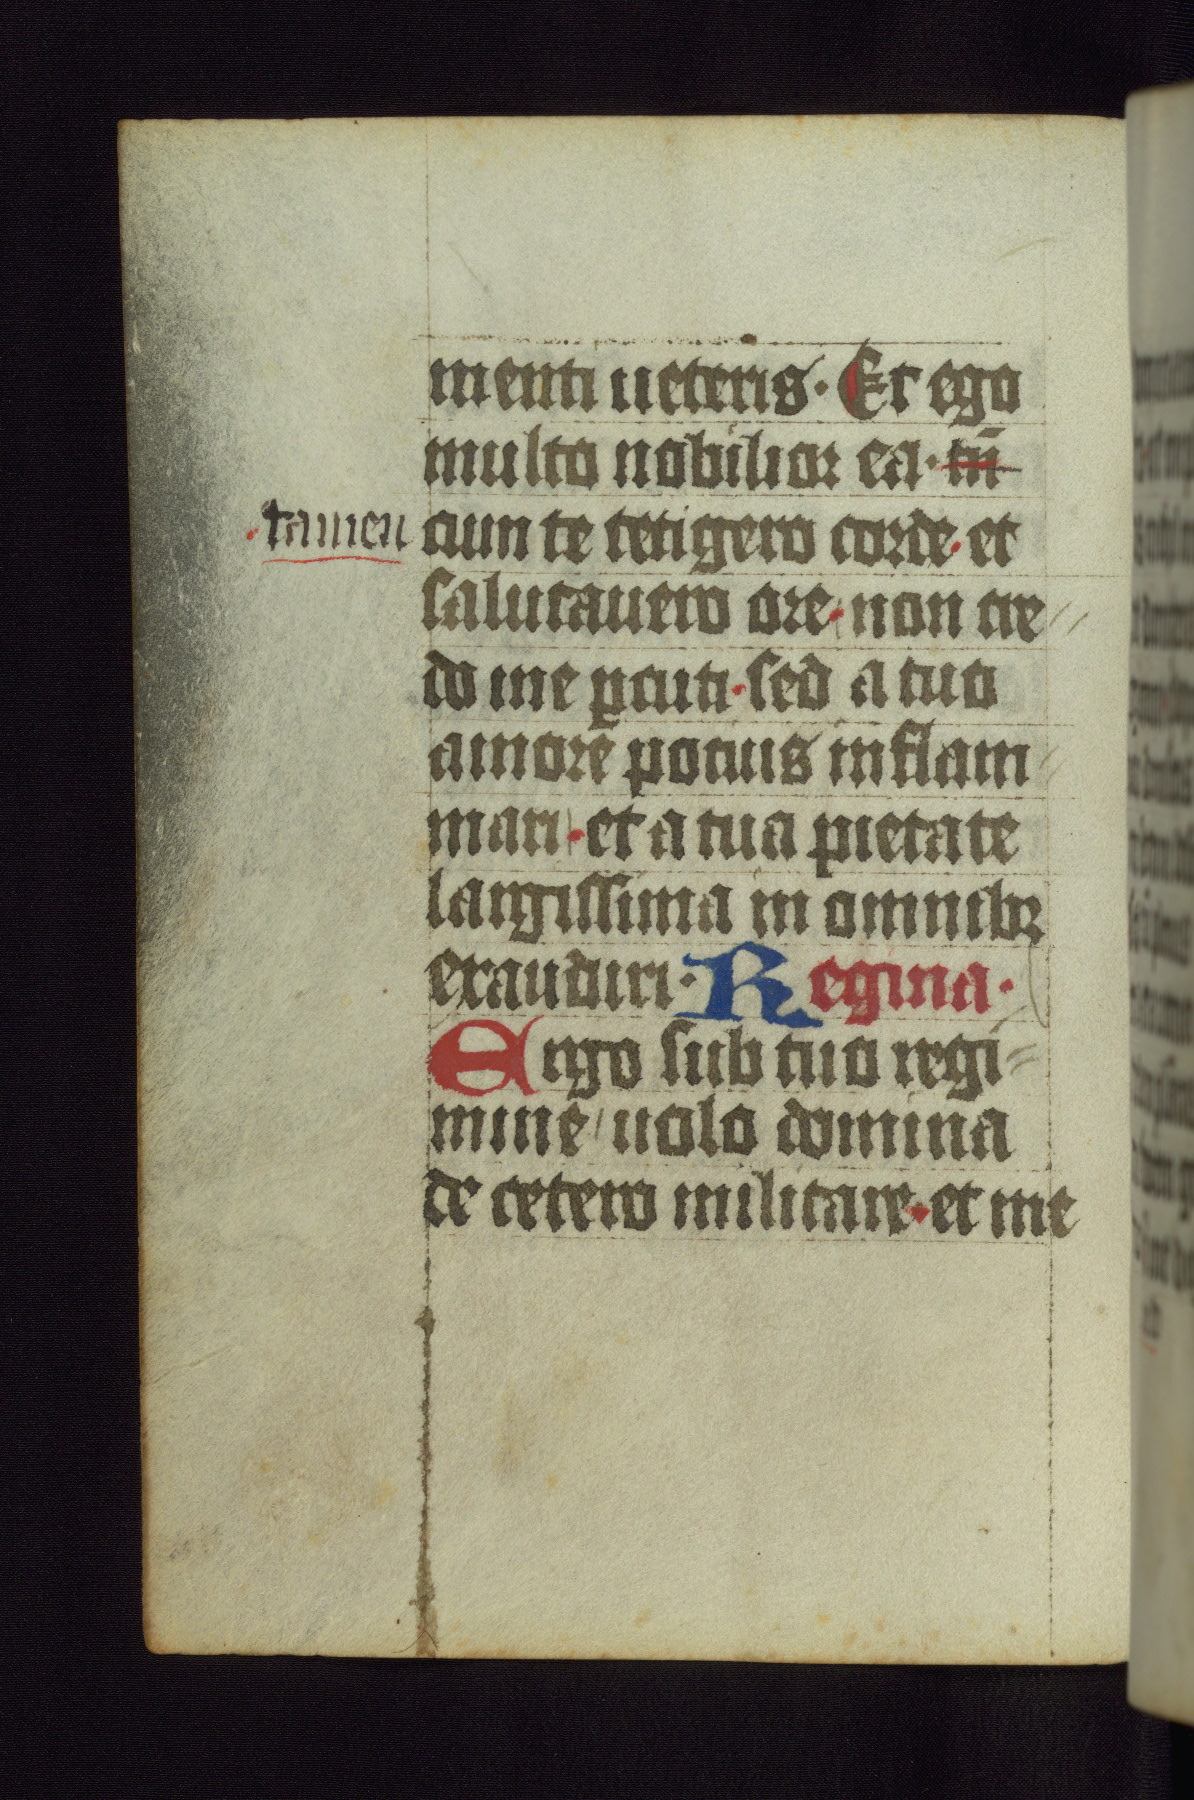 menti ueteris · Et ego
multo nobilior ea · tn̄
· tamen
cum te tetigero corde · et
salutauero ore · non cre
do me ꝑcuti · sed a tuo
amore potius inflam
mari · et a tua pietate
largissima in omnibꝫ
exaudiri · Regina ·
Ergo sub tuo regi
mine / uolo domina
de cetero militare · et me